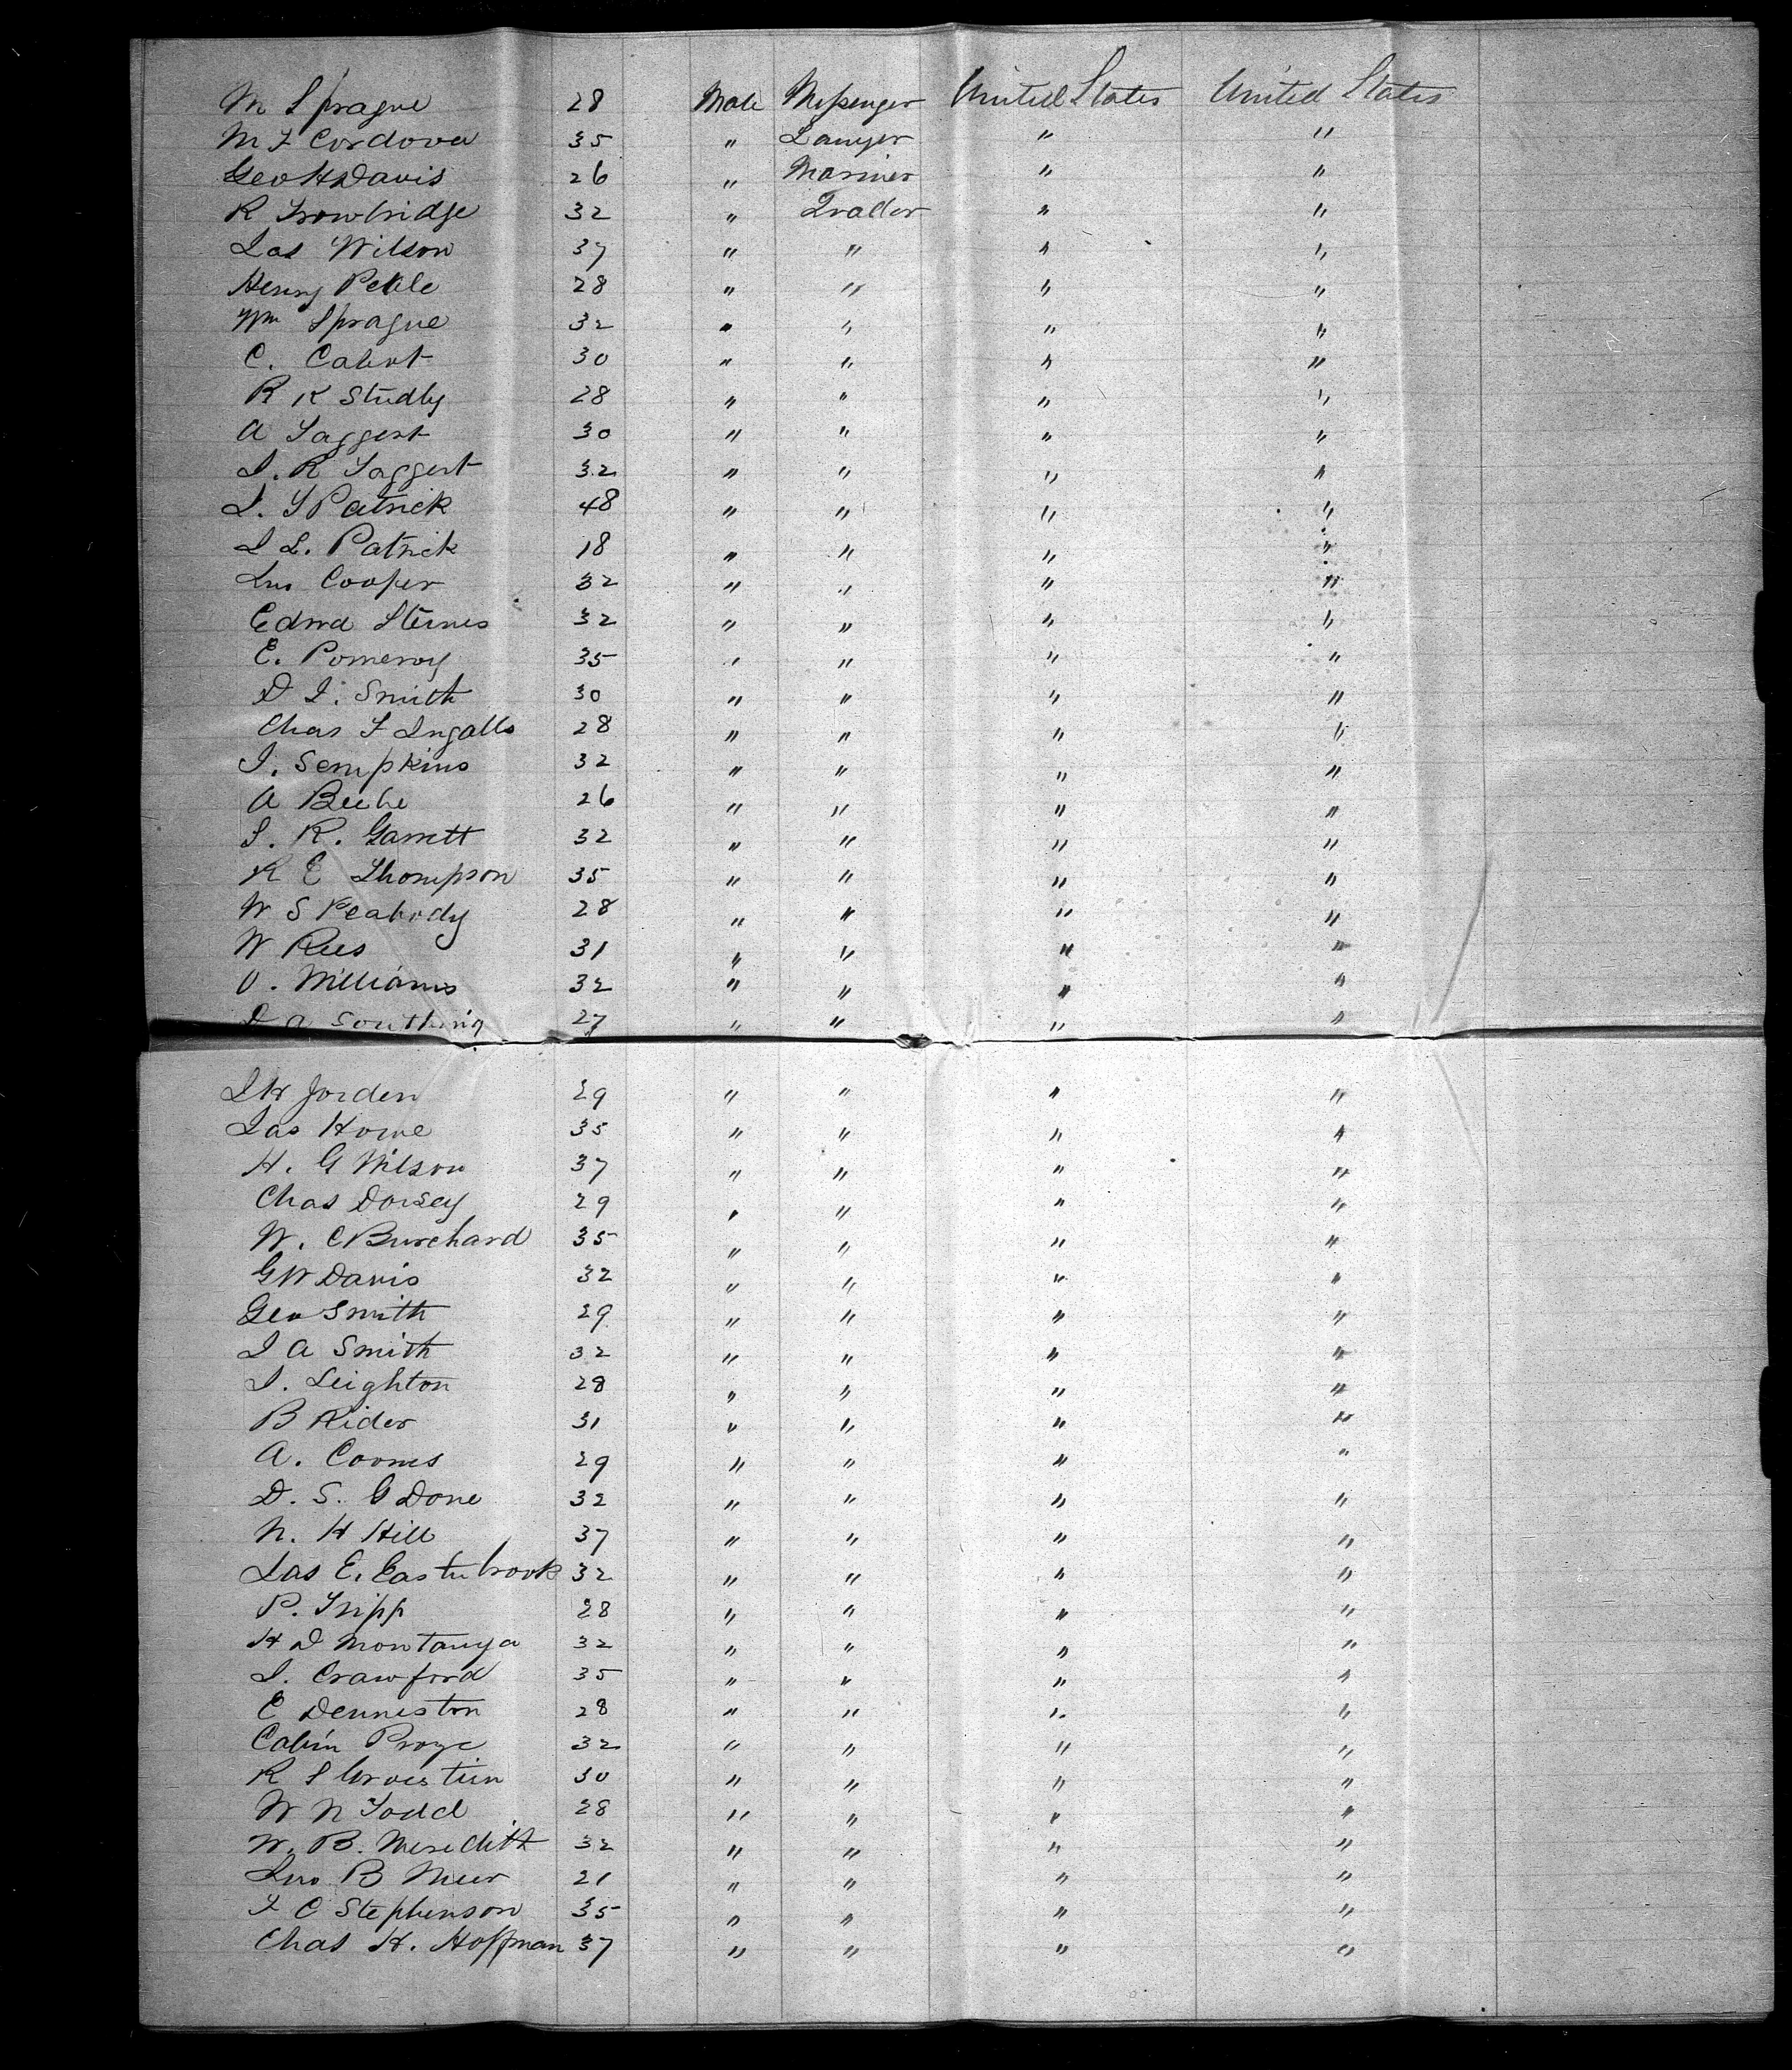 M Sprague 28 Male Messenger United States United States
M F Cordova 35 " Lawyer " "
Geo H Davis 26 " Mariner " "
R Trowbridge 32 " Trader " "
Jas Wilson 37 " " " "
Henry 28 " " " "
Wm Sprague 32 " " " "
C. Cabot 30 " " " "
R K Studly 28 " " " "
A Taggert 30 " " " "
J. R Taggert 32 " " " "
J. Y Patrick 48 " " " "
J L. Patrick 18 " " " "
Jno Cooper 32 " " " "
Edwd Sternes 32 " " " "
E. Pomeroy 35 " " " "
D J. Smith 30 " " " "
Chas F Ingalls 28 " " " "
J. Sempkins 32 " " " "
A Beebe 26 " " " "
S. R. Garrett 32 " " " "
R E Thompson 35 " " " "
W S Peabody 28 " " " "
W Rees 31 " " " "
O. Williams 32 " " " "
D A 27 " " " "
J W Jorden 29 " " " "
Jas Horne 35 " " " "
H. G Wilson 37 " " " "
Chas Dorsey 29 " " " "
W. C Burchard 35 " " " "
G W Davis 32 " " " "
Geo Smith 29 " " " "
J A Smith 32 " " " "
J. Leighton 28 " " " "
B Rider 31 " " " "
A. Cooms 29 " " " "
D. S. G Done 32 " " " "
N. H Hill 37 " " " "
Jas E. Easterbrook 32 " " " "
P. Tripp 28 " " " "
H D Montanya 32 " " " "
J. Crawford 35 " " " "
E Denniston 28 " " " "
Calvin 32 " " " "
R S 30 " " " "
W N Todd 28 " " " "
W. B. Meredith 32 " " " "
Jno B 21 " " " "
F C Stephenson 35 " " " "
Chas H. Hoffman 37 " " " "